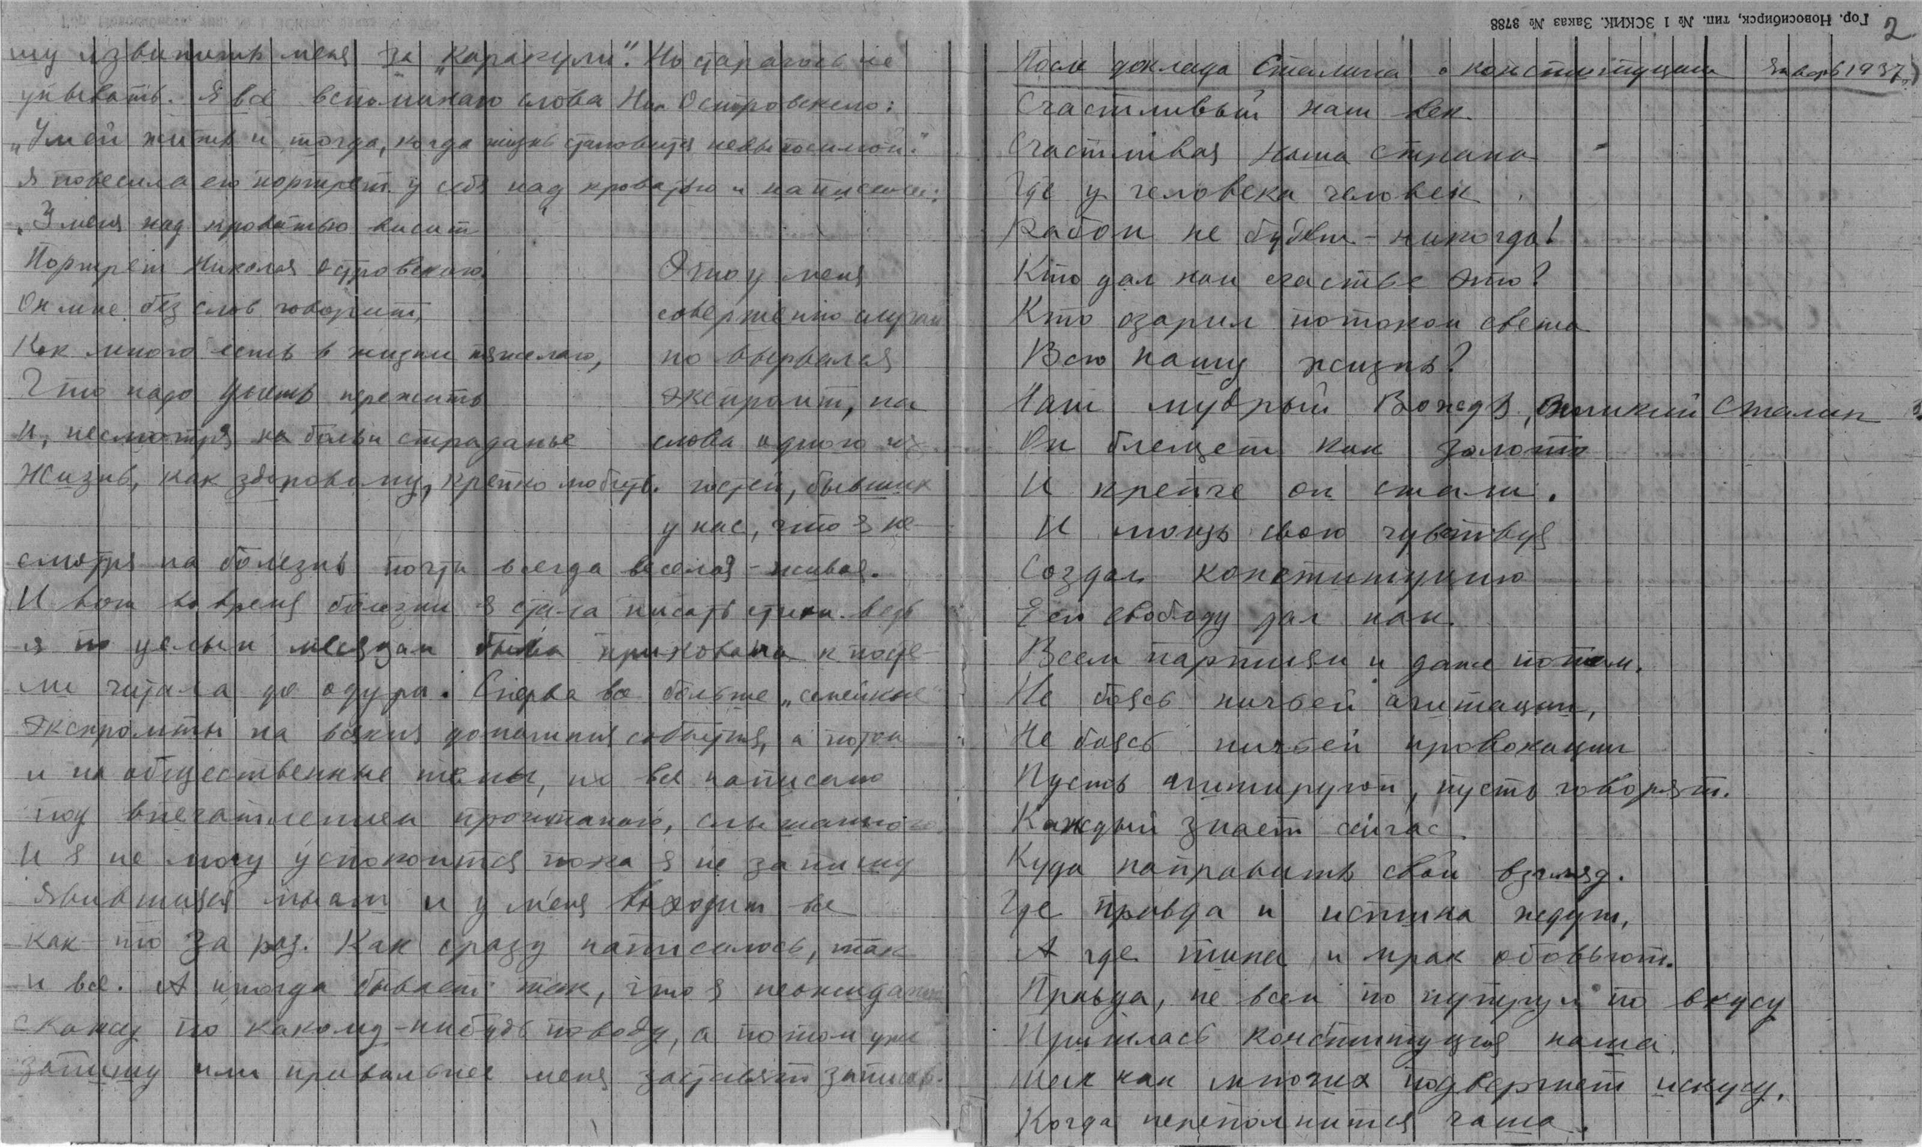 шу извинить меня за "каракули". Но стараюсь не
унывать. Я все вспоминаю слова Ник Островского:
"Умей жить и тогда, когда жизнь становится невыносимой."
Я повесила его портрет у себя над кроватью и написала:
"У меня над кроватью висит
Портрет Николая Островского.
Он мне без слов говорит,
Как много есть в жизни тяжелого,
Что надо уметь пережить
И, несмотря на боль и страданье
Жизнь, как здоровому, крепко любить.
Это у меня
совершенно случай
но вырвался
экспромт, на
слова одного из
гостей, бывших
у нас, что я не
смотря на болезнь почти всегда веселая - живая.
И вот во время болезни я стала писать стихи. ведь
я по целым месяцам была прикована к посте-
ли читала до одури. Сперва все больше "семейные"
экспромты на всякия домашния события, а потом
и на общественные темы, но все написано
под впечатлением прочитаного, слышанного
И я не могу успокоится пока я не запишу
явившияся мысли и у меня выходит все
как то за раз. Как сразу написалось, так
и все. А иногда бывает так, что я неожиданно
скажу по какому-нибудь поводу, а потом уже
запишу или правильнее меня заставят записать.
Гор. Новосибирск, тип. № 1 ЗСКИК. Заказ № 8788
2
После доклада Сталина о конституции Январь 1937г.
Счастливый наш век
Счастливая наша страна
Где у человека человек
Рабом не будет - никогда!
Кто дал нам счастье это?
Кто озарил потоком света
Всю нашу жизнь?
Наш мудрый Вождь, великий Сталин
Он блещет как золото
И крепче он стали.
И мощь свою чувствуя
Создал конституцию
Ею свободу дал нам.
Всем партиям и даже попам.
Не боясь ничьей агитации,
Не боясь ничьей провокации
Пусть агитируют, пусть говорят.
Каждый знает сейчас
Куда направить свой взгляд.
Где правда и истина ждут,
А где тина и мрак обовьют.
Правда, не всем по нутру и по вкусу
Пришлась конституция наша
Шел как многих подвергнет искусу,
Когда переполнится чаша.